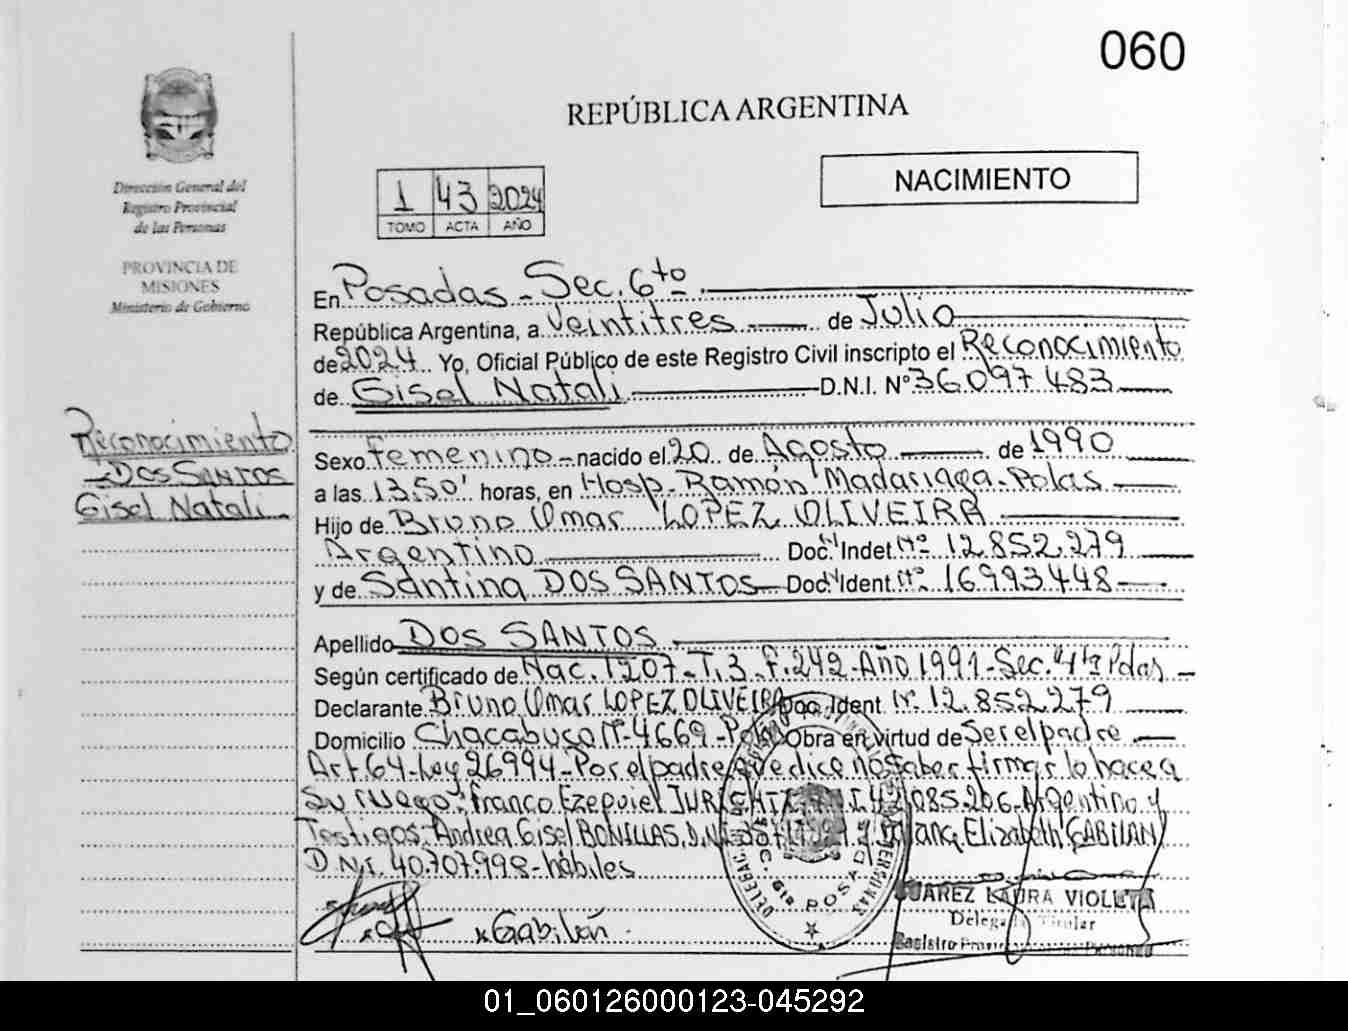 060
REPÚBLICA ARGENTINA
NACIMIENTO
1 43 2024
TOMO ACTA AÑO
Dirección General del
Registro Provincial
de las Personas
PROVINCIA DE
MISIONES
Ministerio de Gobierno
En Posadas - Sec. 6ta
República Argentina, a Veintitres de Julio
de 2024 Yo, Oficial Público de este Registro Civil inscripto el Reconocimiento
de Gisel Natali D.N.I. Nº 36.097.483
Reconocimiento
DOS SANTOS
Gisel Natali
Sexo Femenino - nacido el 20 de Agosto de 1990
a las 13,50' horas, en Hosp. Ramón Madariaga - Pdas
Hijo de Bruno Omar LOPEZ OLIVEIRA
Argentino Doc. Indet Nº 12.852.279
y de Santina DOS SANTOS Doc. Ident. Nº 16.993.448
Apellido DOS SANTOS
Según certificado de Nac. 1207 - T. 3 - F. 242 - Año 1991 - Sec. 4ta Pdas -
Declarante Bruno Omar LOPEZ OLIVEIRA Doc. Ident Nº 12.852.279
Domicilio Chacabuco Nº 4669 - Pdas Obra en virtud de Ser el padre
Art. 64 - Ley 26994 - Por el padre que dice no saber firmar lo hace a
Su ruego: Franco Ezequiel 42.085.206 - Argentino y
Testigos: Andrea Gisel BONILLAS, D.N.I. Elizabeth GABILAN
D.N.I. 40.707.998 - hábiles
Gabilán
SEC. 6ta POSADAS
JUAREZ LAURA VIOLETA
Delegada Titular
01_060126000123-045292